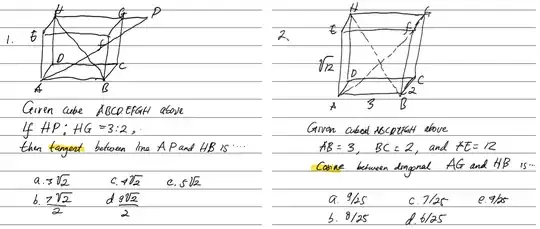 1.
H G P
E F
D C
A B
Given cube ABCDEFGH above
If HP : HG = 3:2,
then tangent between line AP and HB is ....
a. 3√2 c. 4√2 e. 5√2
b. 7√2/2 d. 9√2/2
2.
H G
E F
√12
D C
2
A 3 B
Given cuboid ABCDEFGH above
AB = 3, BC = 2, and AE = √12
Cosine between diagonal AG and HB is ...
a. 9/25 c. 7/25 e. 9/25
b. 8/25 d. 6/25